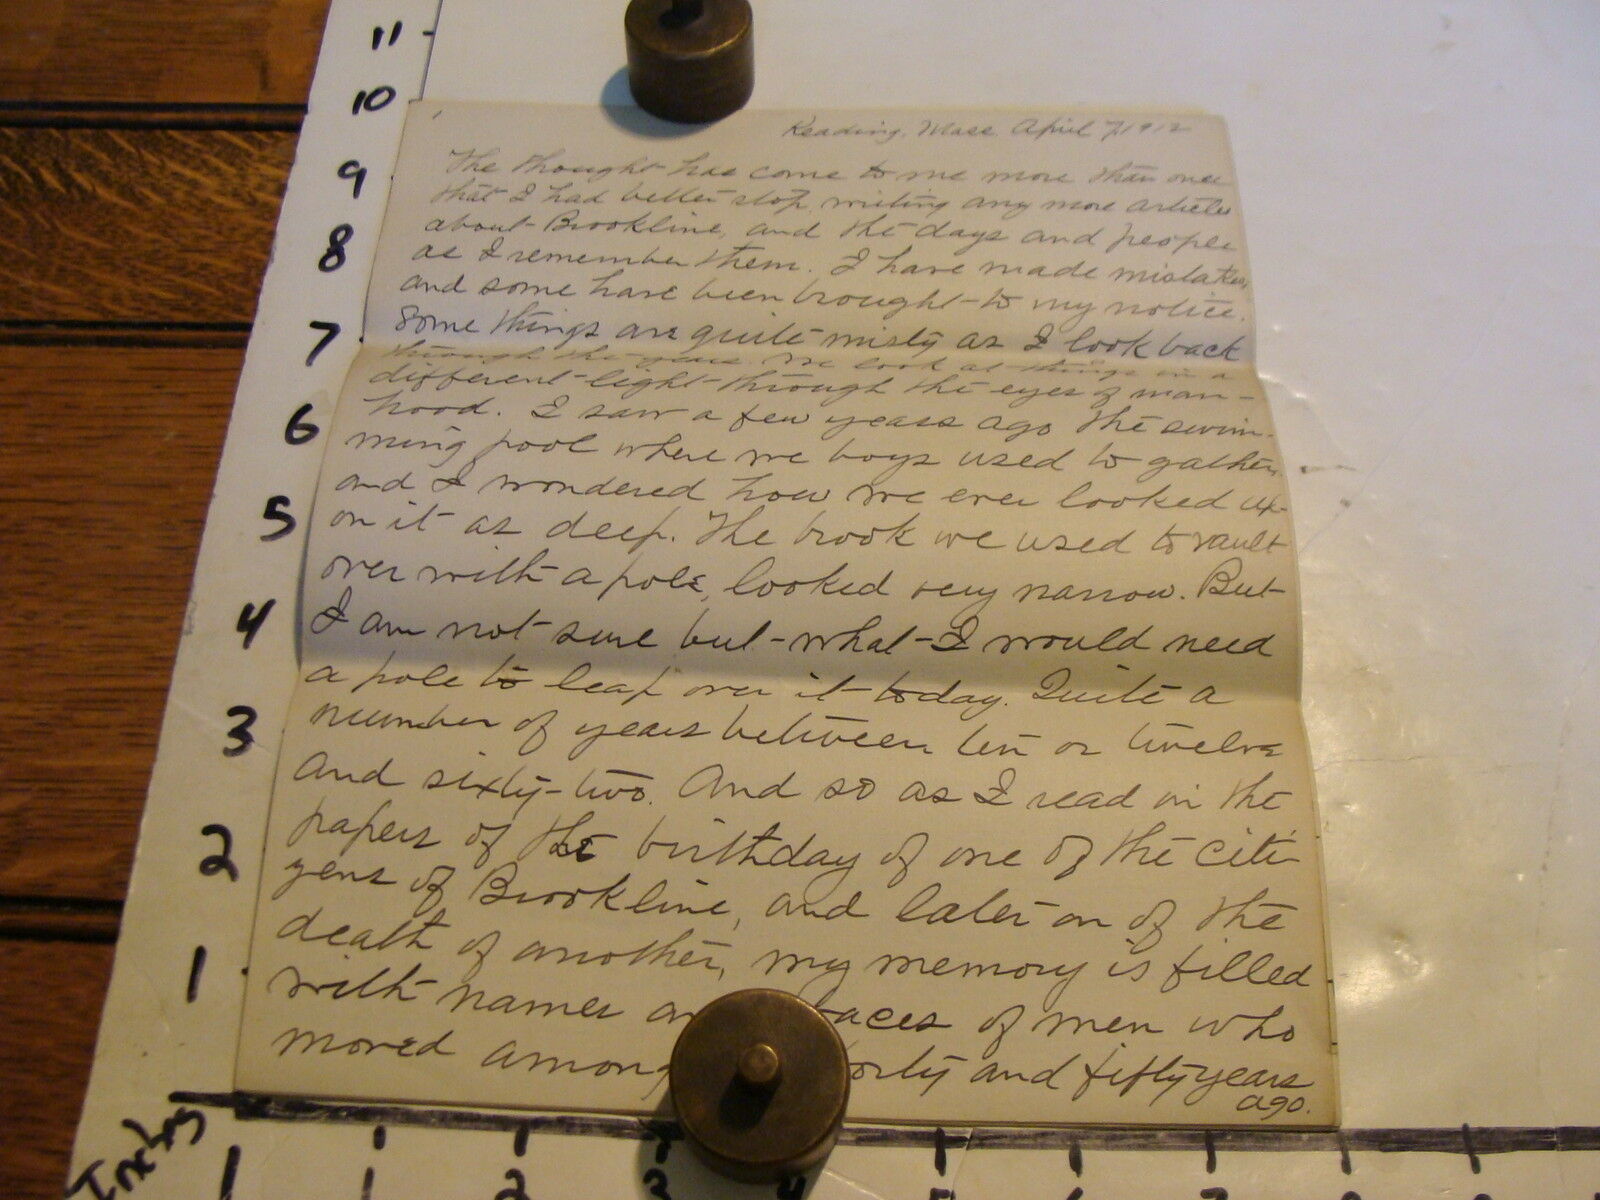 11
10
9
8
7
6
5
4
3
2
1
Inches
1
2
3
4
5
6
7
8
Reading, Mass. April 7, 1912
The thought has come to me more than once
that I had better stop writing any more articles
about Brookline, and the days and people
as I remember them. I have made mistakes,
and some have been brought to my notice.
Some things are quite misty as I look back
through the years. We look at things in a
different light through the eyes of man-
hood. I saw a few years ago the swim-
ming pool where we boys used to gather,
and I wondered how we ever looked up-
on it as deep. The brook we used to vault
over with a pole, looked very narrow. But
I am not sure but what I would need
a pole to leap over it today. Quite a
number of years between ten or twelve
and sixty-two. And so as I read in the
papers of the birthday of one of the citi-
zens of Brookline, and later on of the
death of another, my memory is filled
with names faces of men who
moved among forty and fifty years
ago.